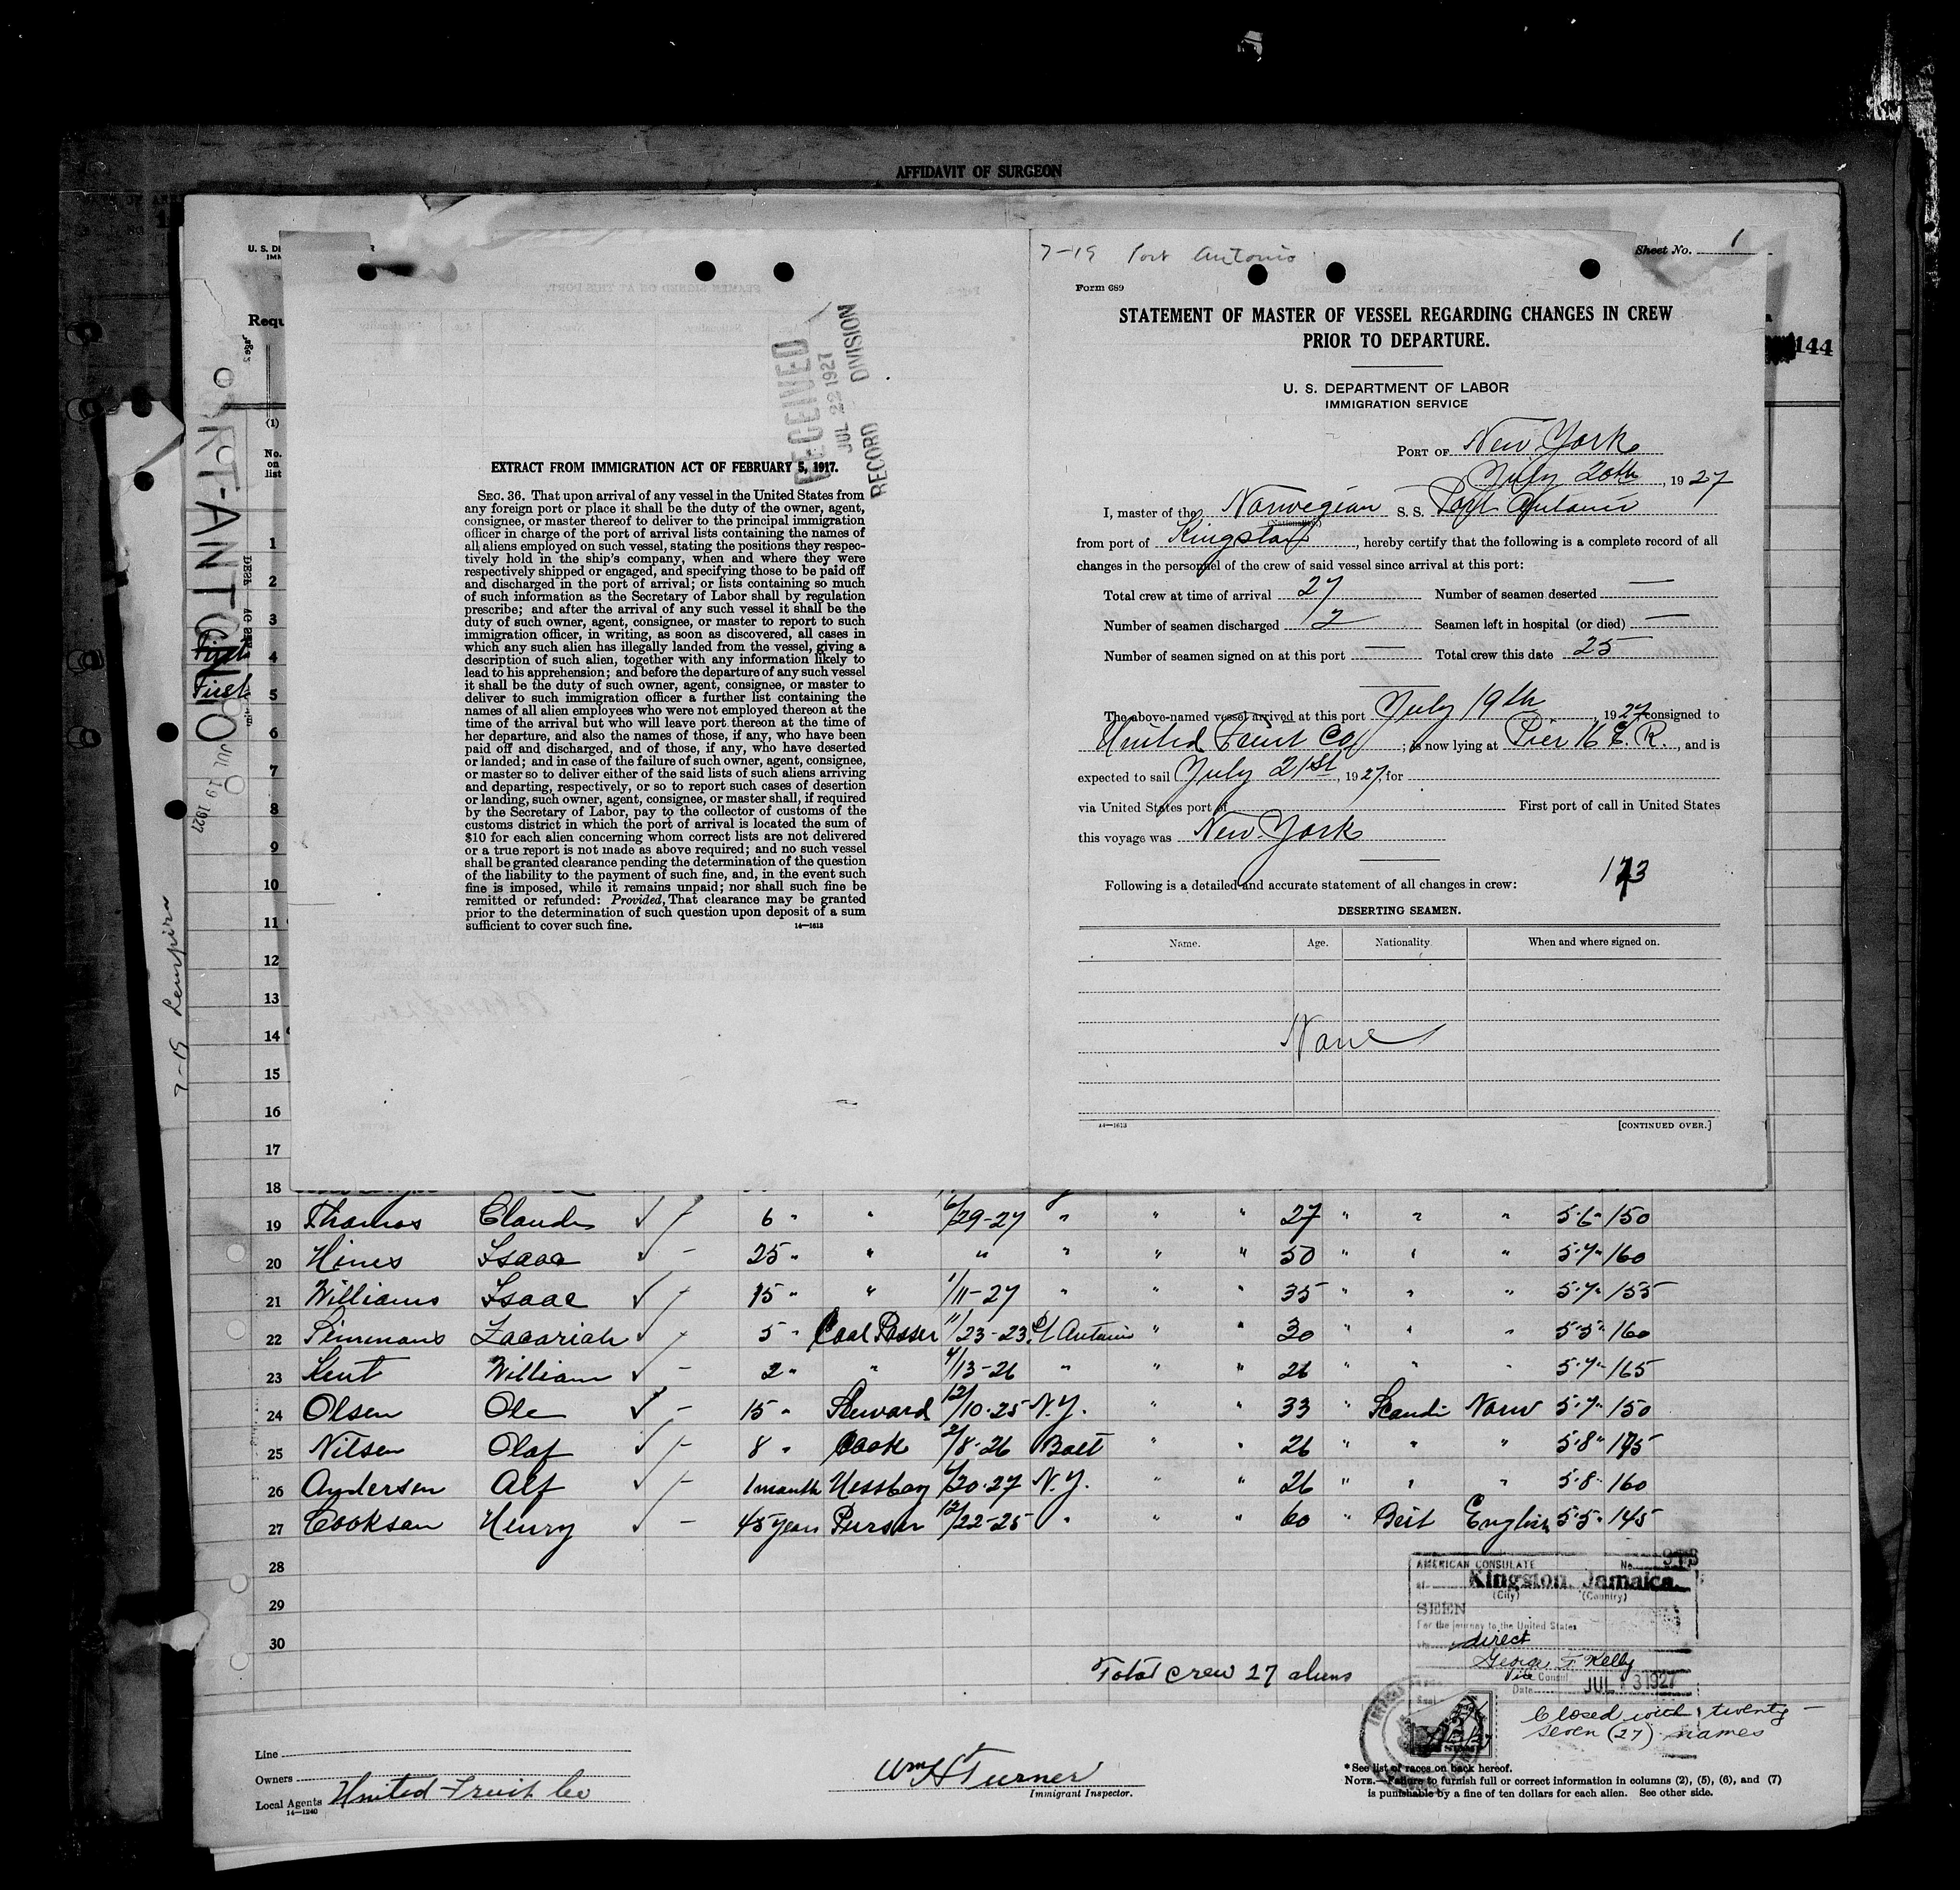 AFFIDAVIT OF SURGEON
7-19 Port Antonio
Sheet No. 1
Form 689
STATEMENT OF MASTER OF VESSEL REGARDING CHANGES IN CREW
PRIOR TO DEPARTURE.
U. S. DEPARTMENT OF LABOR
IMMIGRATION SERVICE
PORT OF New York
July 20th, 1927
I, master of the Norwegian S. S. Port Antonio
(Nationality.)
from port of Kingston, hereby certify that the following is a complete record of all
changes in the personnel of the crew of said vessel since arrival at this port:
Total crew at time of arrival 27 Number of seamen deserted —
Number of seamen discharged 2 Seamen left in hospital (or died) —
Number of seamen signed on at this port — Total crew this date 25
The above-named vessel arrived at this port July 19th, 1927 consigned to
United Fruit Co; is now lying at Pier 16 E. R., and is
expected to sail July 21st, 1927, for
via United States port of First port of call in United States
this voyage was New York
Following is a detailed and accurate statement of all changes in crew:
173
DESERTING SEAMEN.
Name. Age. Nationality. When and where signed on.
None
14—1613
[CONTINUED OVER.]
144
RECEIVED
JUL 22 1927
RECORD DIVISION
EXTRACT FROM IMMIGRATION ACT OF FEBRUARY 5, 1917.
SEC. 36. That upon arrival of any vessel in the United States from
any foreign port or place it shall be the duty of the owner, agent,
consignee, or master thereof to deliver to the principal immigration
officer in charge of the port of arrival lists containing the names of
all aliens employed on such vessel, stating the positions they respec-
tively hold in the ship's company, when and where they were
respectively shipped or engaged, and specifying those to be paid off
and discharged in the port of arrival; or lists containing so much
of such information as the Secretary of Labor shall by regulation
prescribe; and after the arrival of any such vessel it shall be the
duty of such owner, agent, consignee, or master to report to such
immigration officer, in writing, as soon as discovered, all cases in
which any such alien has illegally landed from the vessel, giving a
description of such alien, together with any information likely to
lead to his apprehension; and before the departure of any such vessel
it shall be the duty of such owner, agent, consignee, or master to
deliver to such immigration officer a further list containing the
names of all alien employees who were not employed thereon at the
time of the arrival but who will leave port thereon at the time of
her departure, and also the names of those, if any, who have been
paid off and discharged, and of those, if any, who have deserted
or landed; and in case of the failure of such owner, agent, consignee,
or master so to deliver either of the said lists of such aliens arriving
and departing, respectively, or so to report such cases of desertion
or landing, such owner, agent, consignee, or master shall, if required
by the Secretary of Labor, pay to the collector of customs of the
customs district in which the port of arrival is located the sum of
$10 for each alien concerning whom correct lists are not delivered
or a true report is not made as above required; and no such vessel
shall be granted clearance pending the determination of the question
of the liability to the payment of such fine, and, in the event such
fine is imposed, while it remains unpaid; nor shall such fine be
remitted or refunded: Provided, That clearance may be granted
prior to the determination of such question upon deposit of a sum
sufficient to cover such fine.
14—1613
Requ
(1)
No.
on
list
First
First
JUL 19 1927
7-19 Lempira
1
2
3
4
5
6
7
8
9
10
11
12
13
14
15
16
17
18
19 Thomas Claude ✓ 6 " " 6/29-27 " " " 27 " " " 5·6" 150
20 Hines Isaac ✓ - 25 " " " " " " 50 " " " 5·7" 160
21 Williams Isaac ✓ 15 " " 1/11-27 " " " 35 " " " 5·7" 155
22 Simmons Zacariah ✓ 5 " Coal Passer 11/23-23 Pt Antonio " " 30 " " " 5·5" 160
23 Kent William ✓ - 2 " " 4/13-26 " " " 26 " " " 5·7" 165
24 Olsen Ole ✓ - 15 " Steward 12/10-25 N.Y. " " 33 " Scandi Norw 5·7" 150
25 Nilsen Olaf ✓ 8 " Cook 2/8-26 Balt " " 26 " " " 5·8" 175
26 Andersen Alf ✓ 1 month Messboy 6/20-27 N.Y. " " 26 " " " 5·8" 160
27 Cookson Henry ✓ - 45 years Purser 12/22-25 " " " 60 " Brit English 5·5" 145
28
29
30
Total crew 27 aliens
AMERICAN CONSULATE No.
at Kingston, Jamaica.
(City) (Country)
SEEN
For the journey to the United States
via direct
George F. Kelly
Vice Consul
Date JUL 13 1927
Closed with twenty-
seven (27) names
Line
Owners
Local Agents United Fruit Co
14—1240
Wm H Turner
Immigrant Inspector.
* See list of races on back hereof.
NOTE.—Failure to furnish full or correct information in columns (2), (5), (6), and (7)
is punishable by a fine of ten dollars for each alien. See other side.